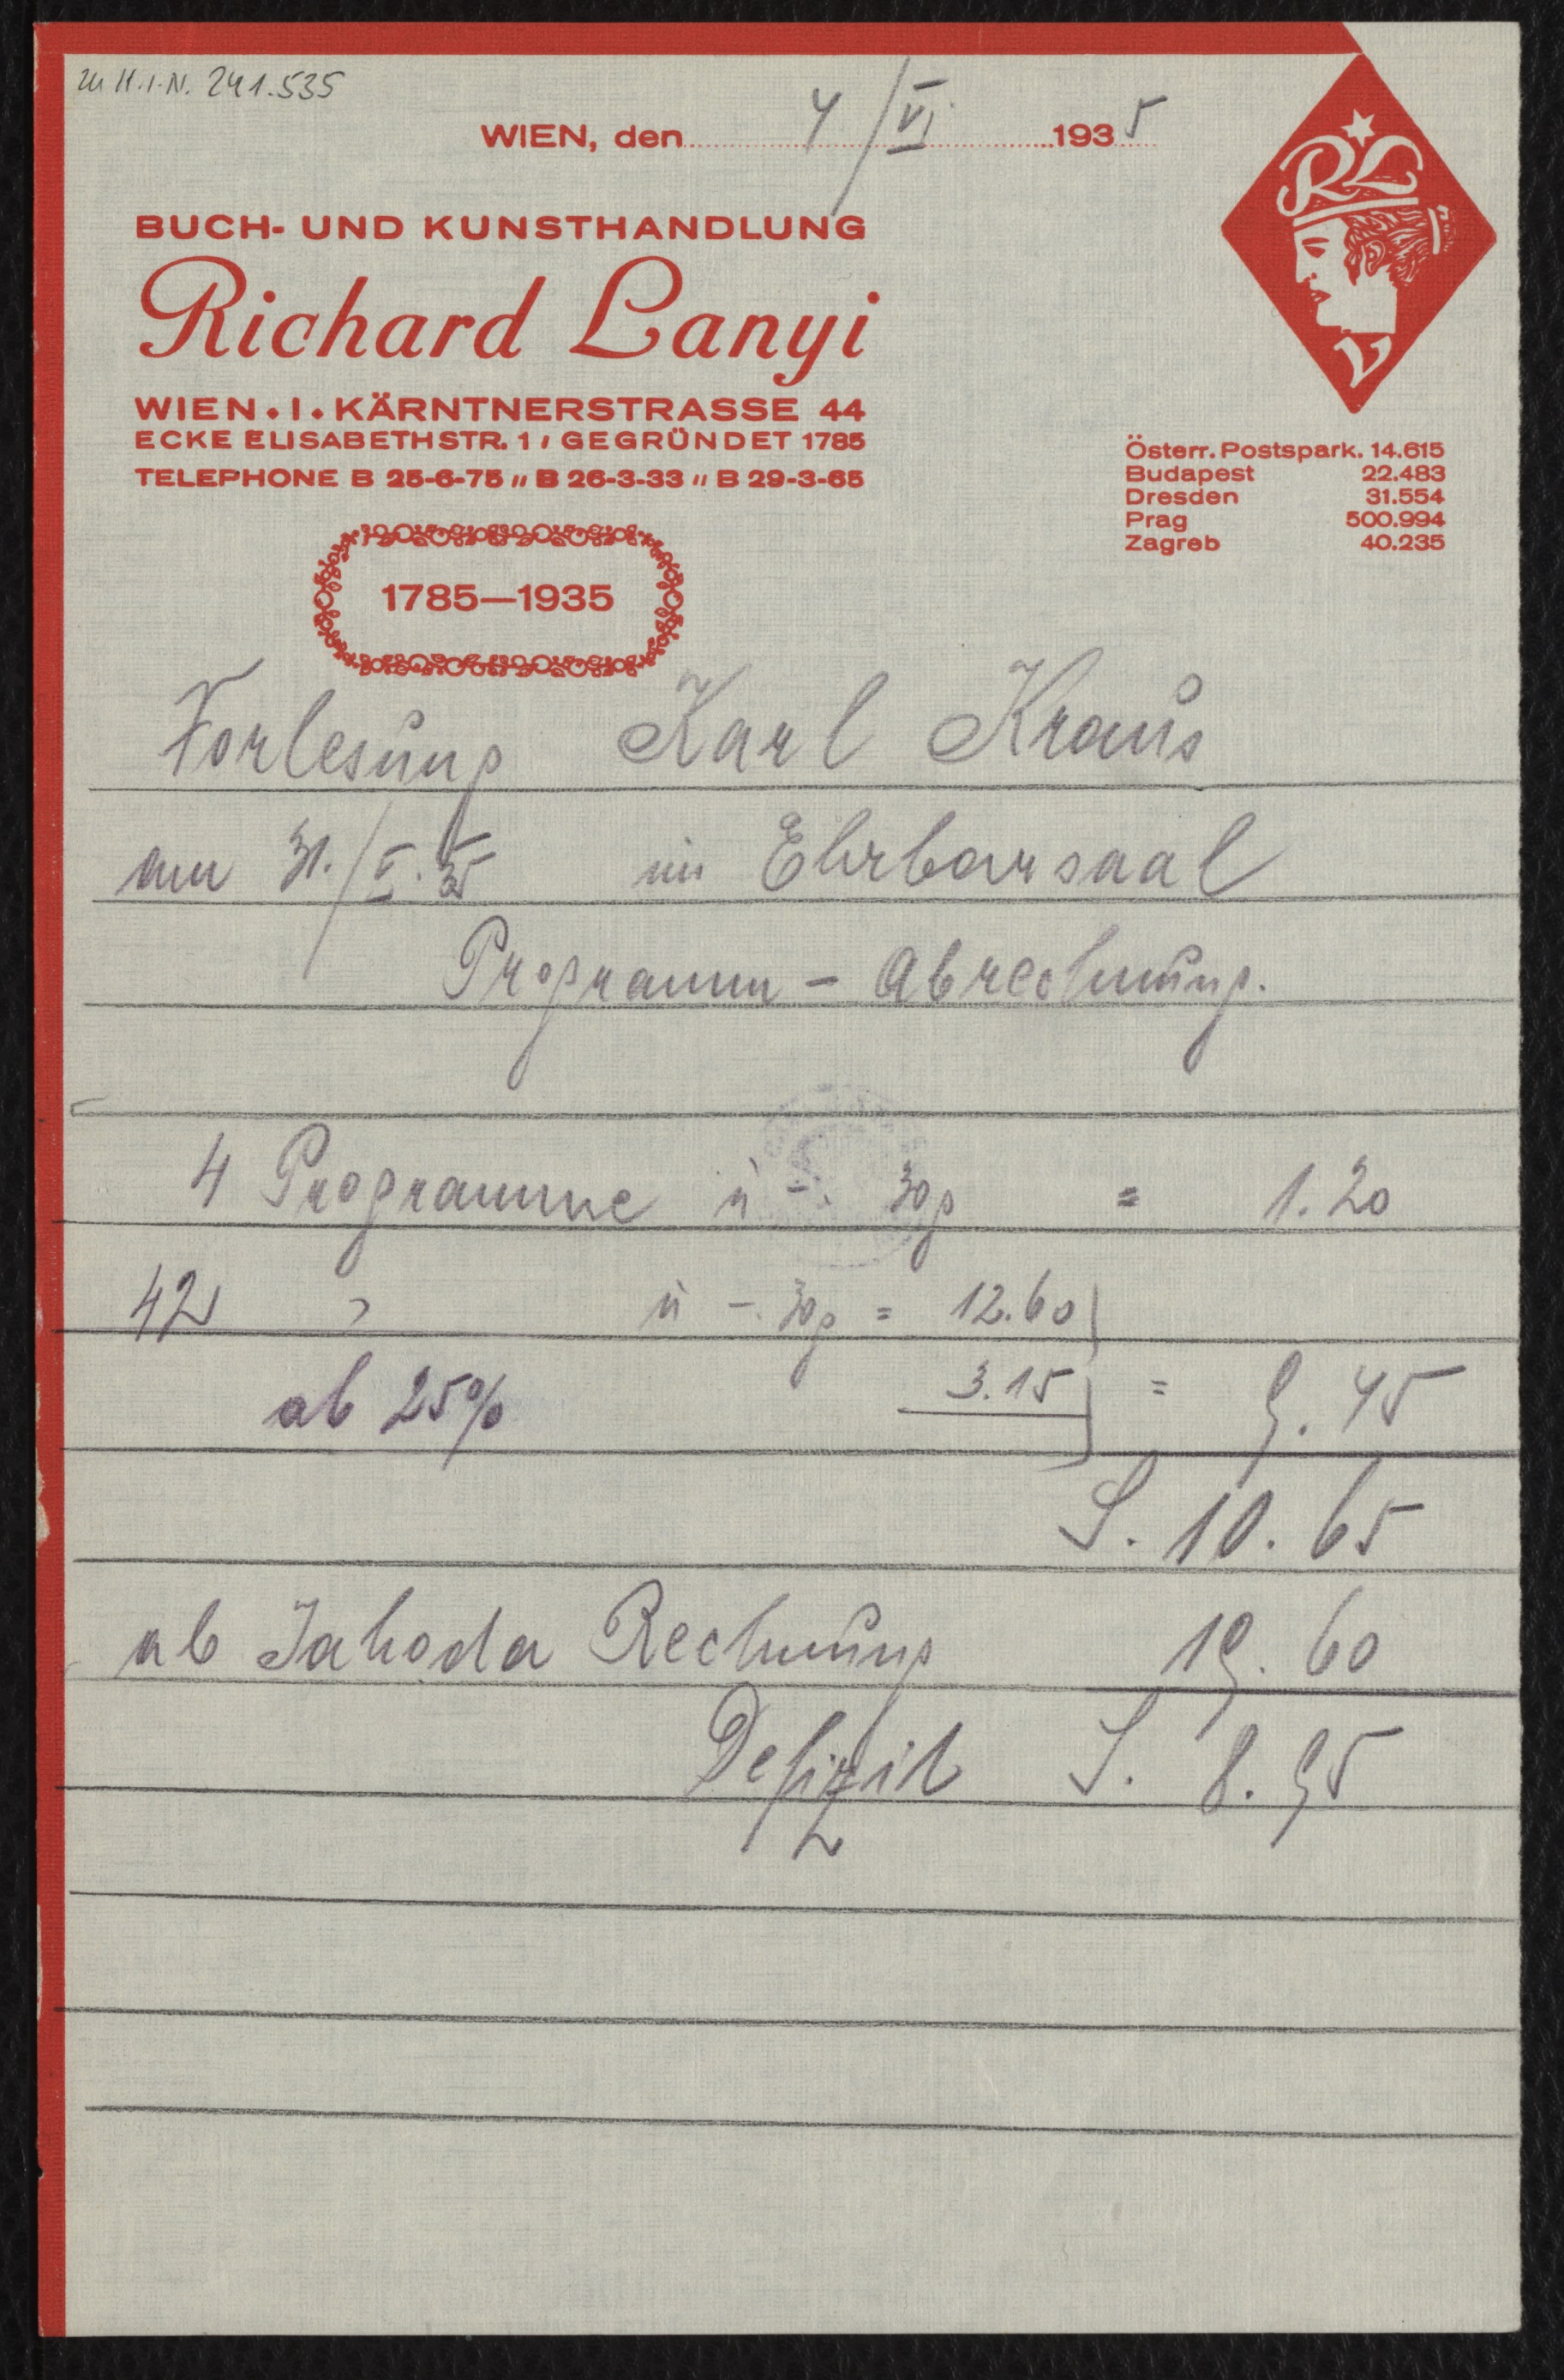 zu H.I.N. 241.535
WIEN, den 4/VI. 1935
BUCH- UND KUNSTHANDLUNG
Richard Lanyi
WIEN • I • KÄRNTNERSTRASSE 44
ECKE ELISABETHSTR. 1 / GEGRÜNDET 1785
TELEPHONE B 25-6-75 // B 26-3-33 // B 29-3-65
RL
Österr. Postspark. 14.615
Budapest 22.483
Dresden 31.554
Prag 500.994
Zagreb 40.235
1785—1935
Vorlesung Karl Kraus
am 31./V. 35 im Ehrbarsaal
Programm - Abrechnung.
4 Programme à -. 30g = 1.20
42 " à -. 30g = 12.60
ab 25% 3.15 = 9.45
S. 10.65
ab Jahoda Rechnung 19.60
Defizit S. 8.95